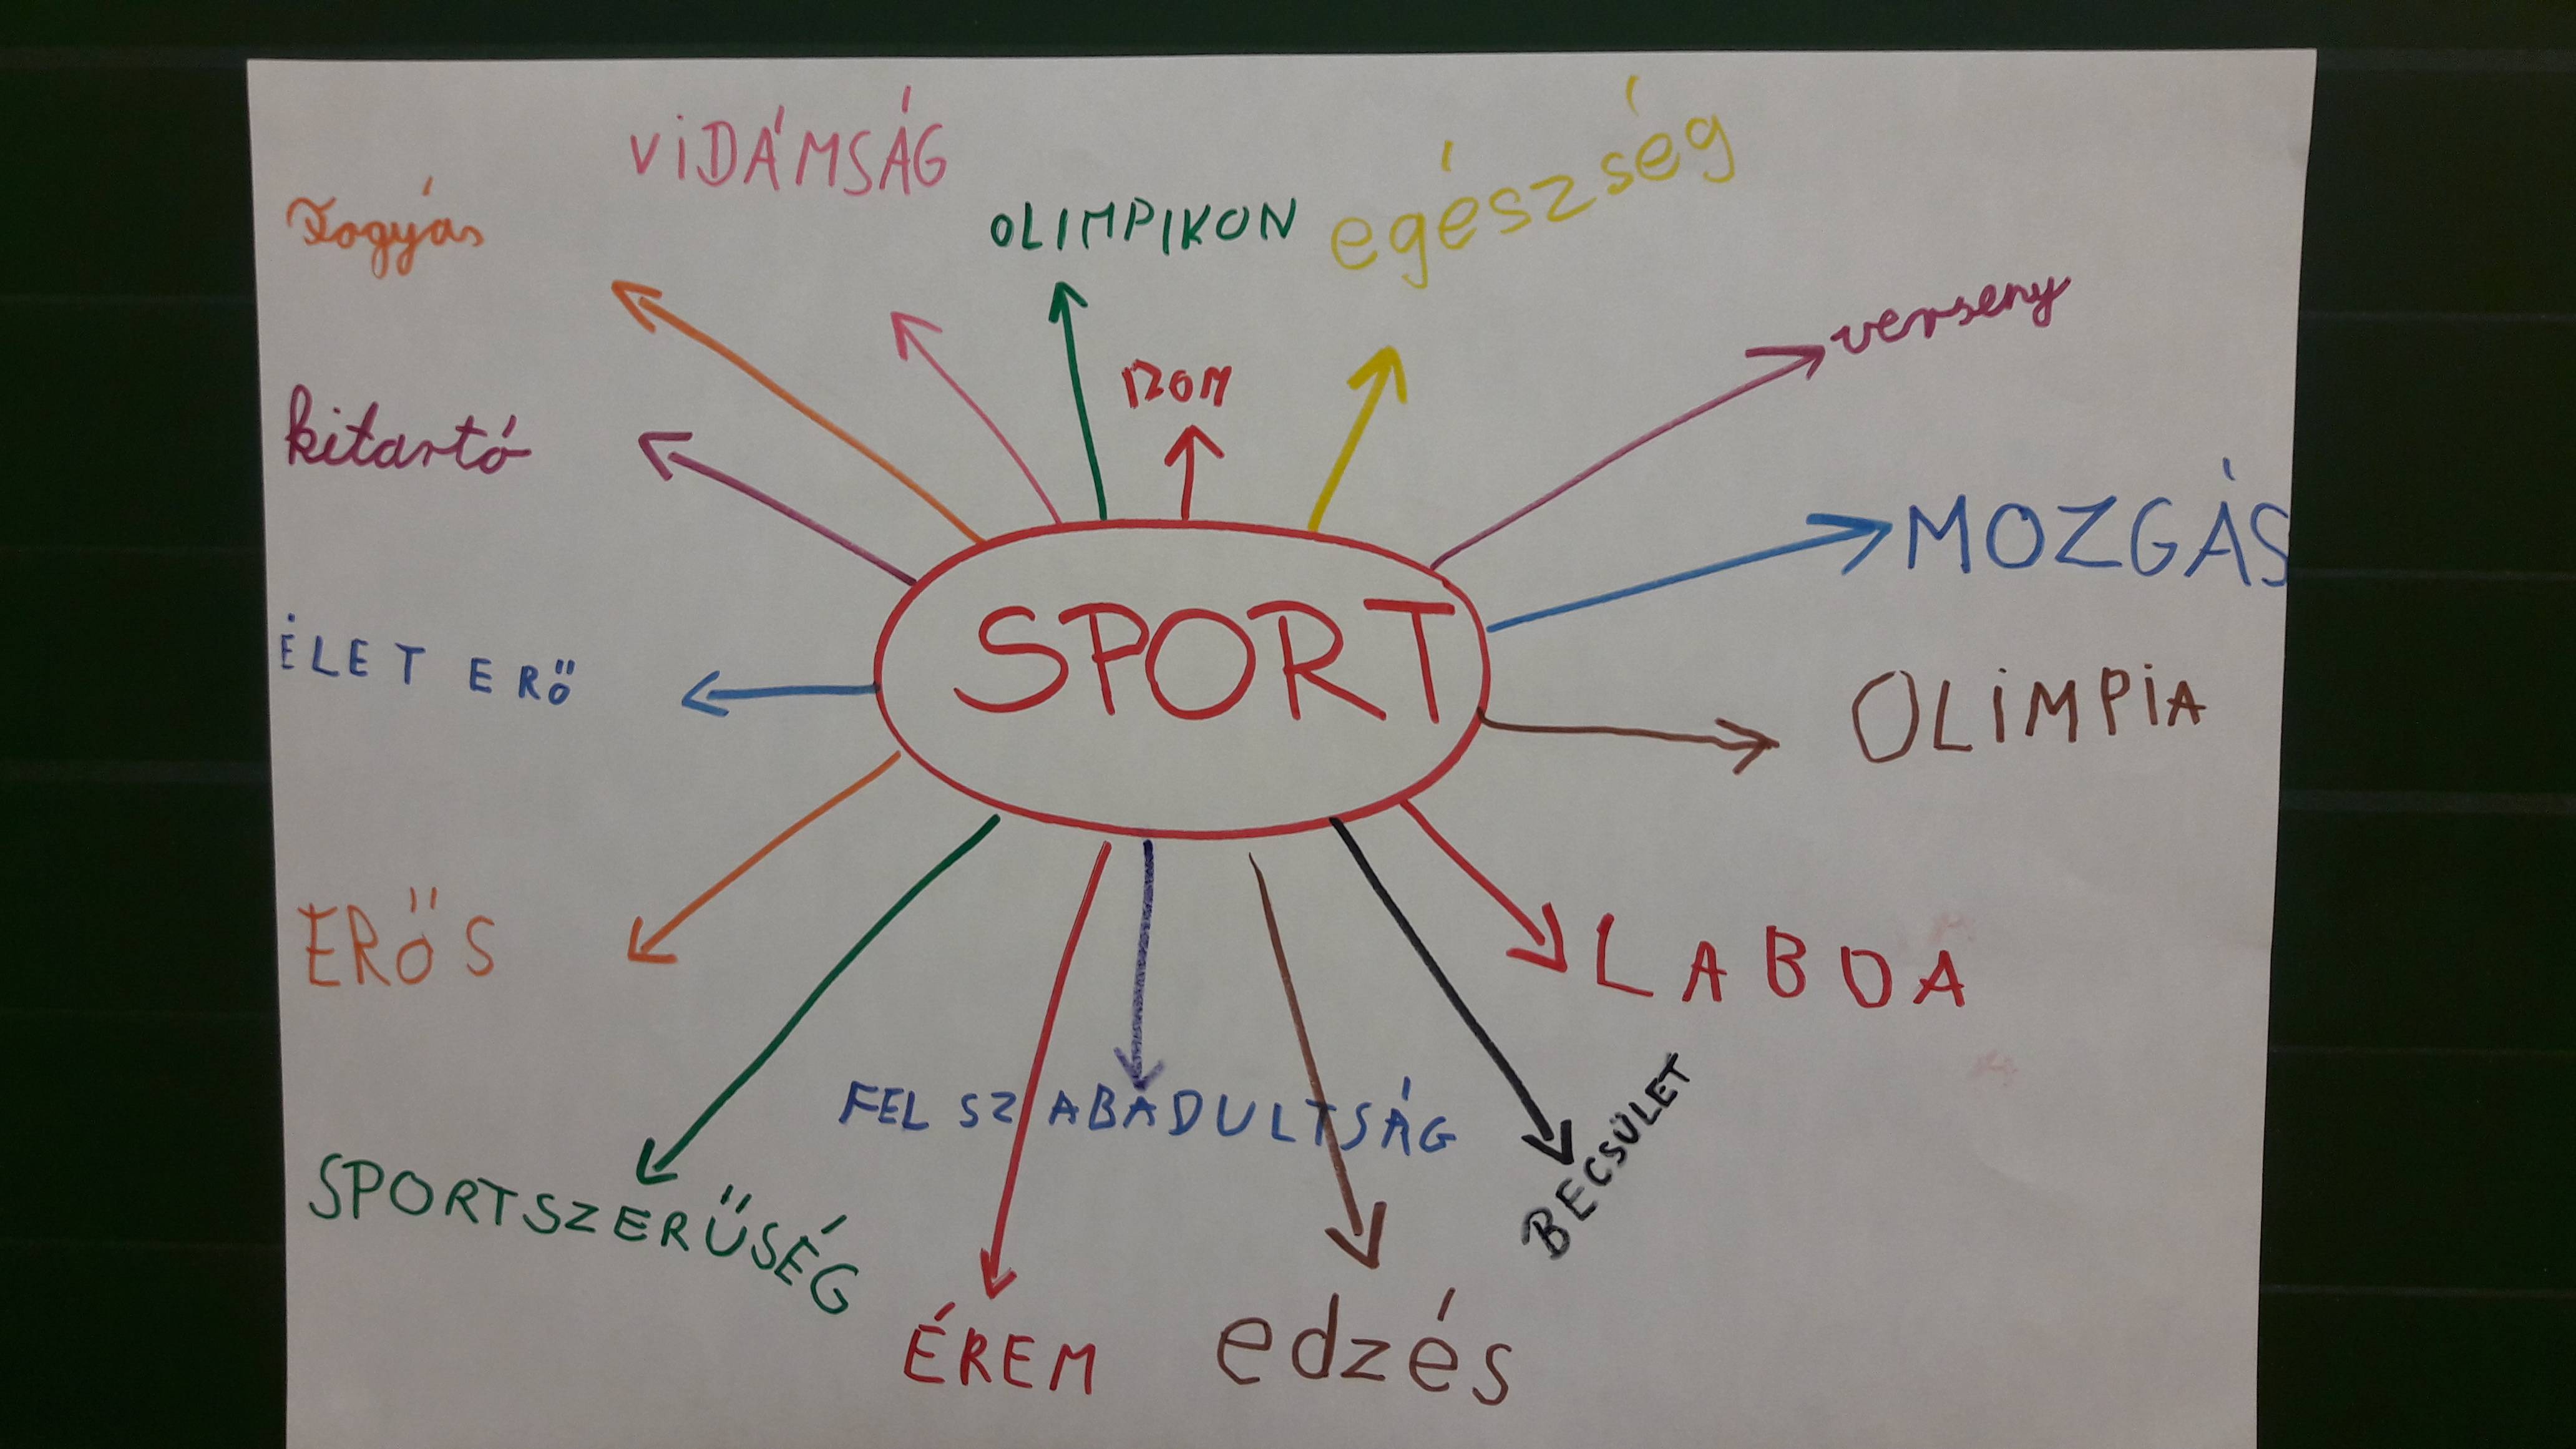 VIDÁMSÁG
Fogyás
OLIMPIKON
egészség
IZOM
verseny
kitartó
MOZGÁS
SPORT
ÉLET ERŐ
OLIMPIA
ERŐS
LABDA
FELSZABADULTSÁG
BECSÜLET
SPORTSZERŰSÉG
ÉREM
edzés